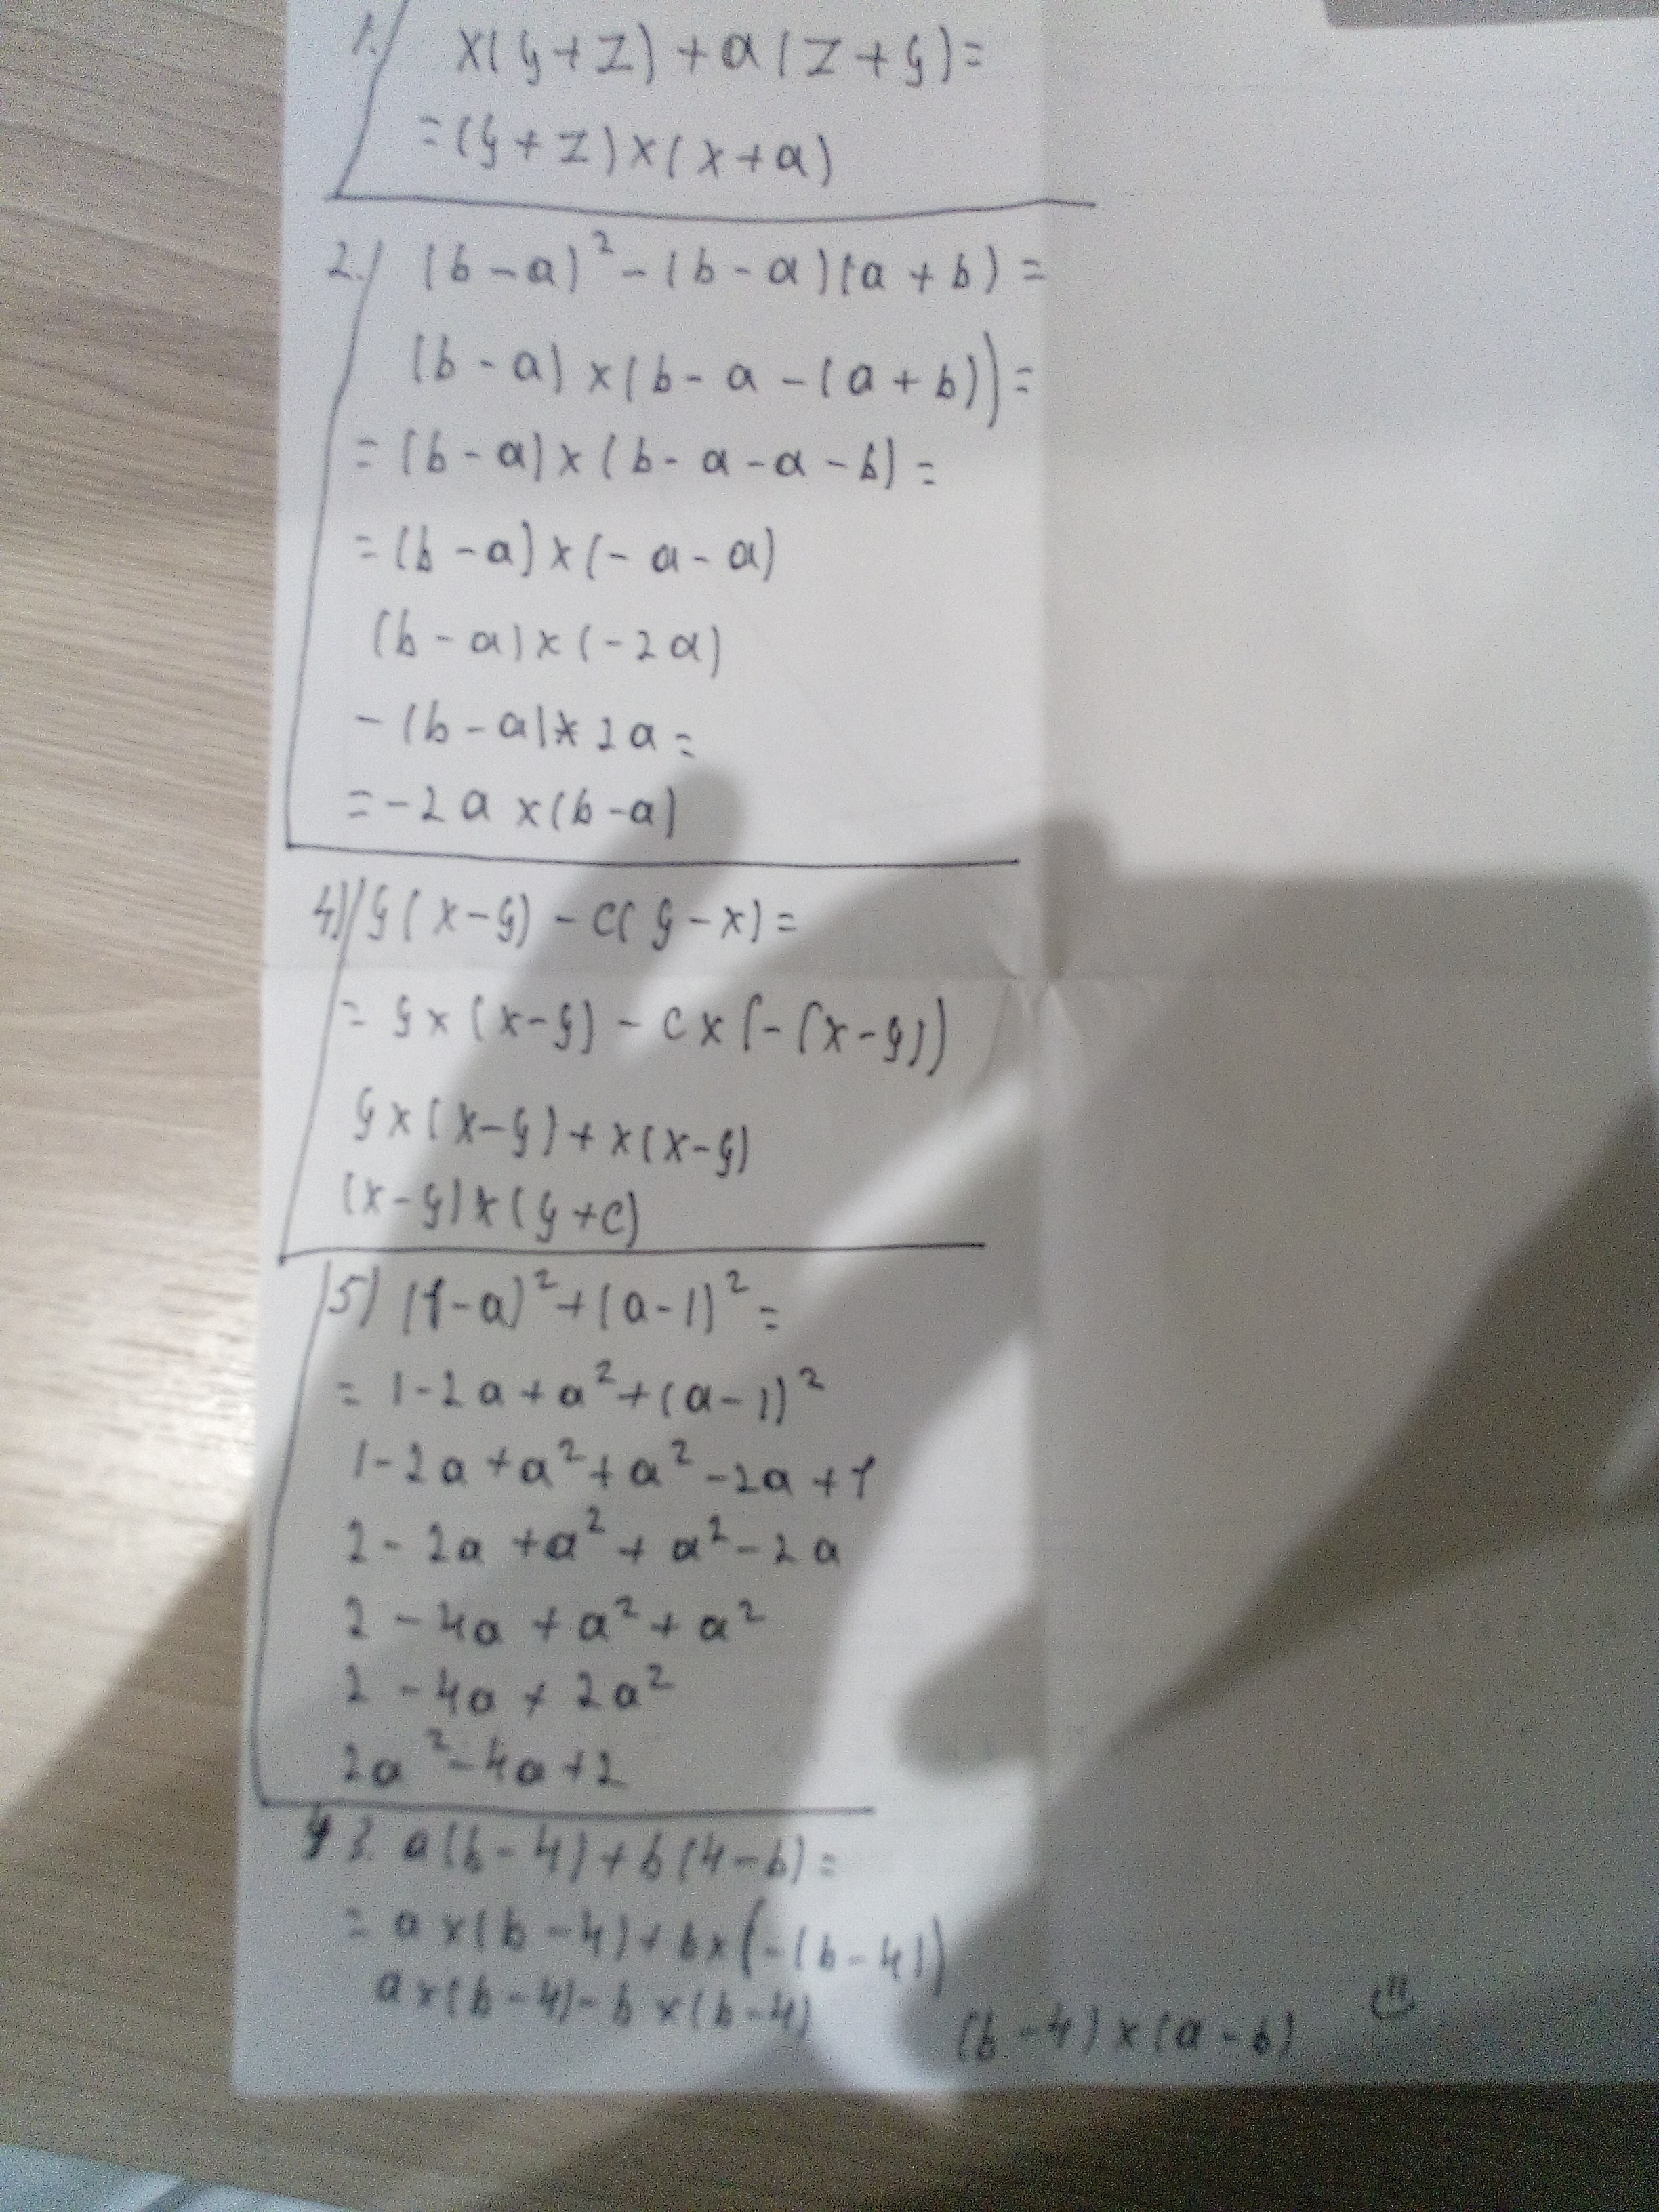 1. x(y+z)+a(z+y)=
=(y+z)x(x+a)
2. (b-a)²-(b-a)(a+b)=
(b-a)x(b-a-(a+b))=
=(b-a)x(b-a-a-b)=
=(b-a)x(-a-a)
(b-a)x(-2a)
-(b-a)x2a=
=-2ax(b-a)
4) y(x-y)-c(y-x)=
=yx(x-y)-cx(-(x-y))
yx(x-y)+x(x-y)
(x-y)x(y+c)
5) (1-a)²+(a-1)²=
=1-2a+a²+(a-1)²
1-2a+a²+a²-2a+1
2-2a+a²+a²-2a
2-4a+a²+a²
2-4a+2a²
2a²-4a+2
3. a(b-4)+b(4-b)=
=ax(b-4)+bx(-(b-4))
ax(b-4)-bx(b-4) (b-4)x(a-b)